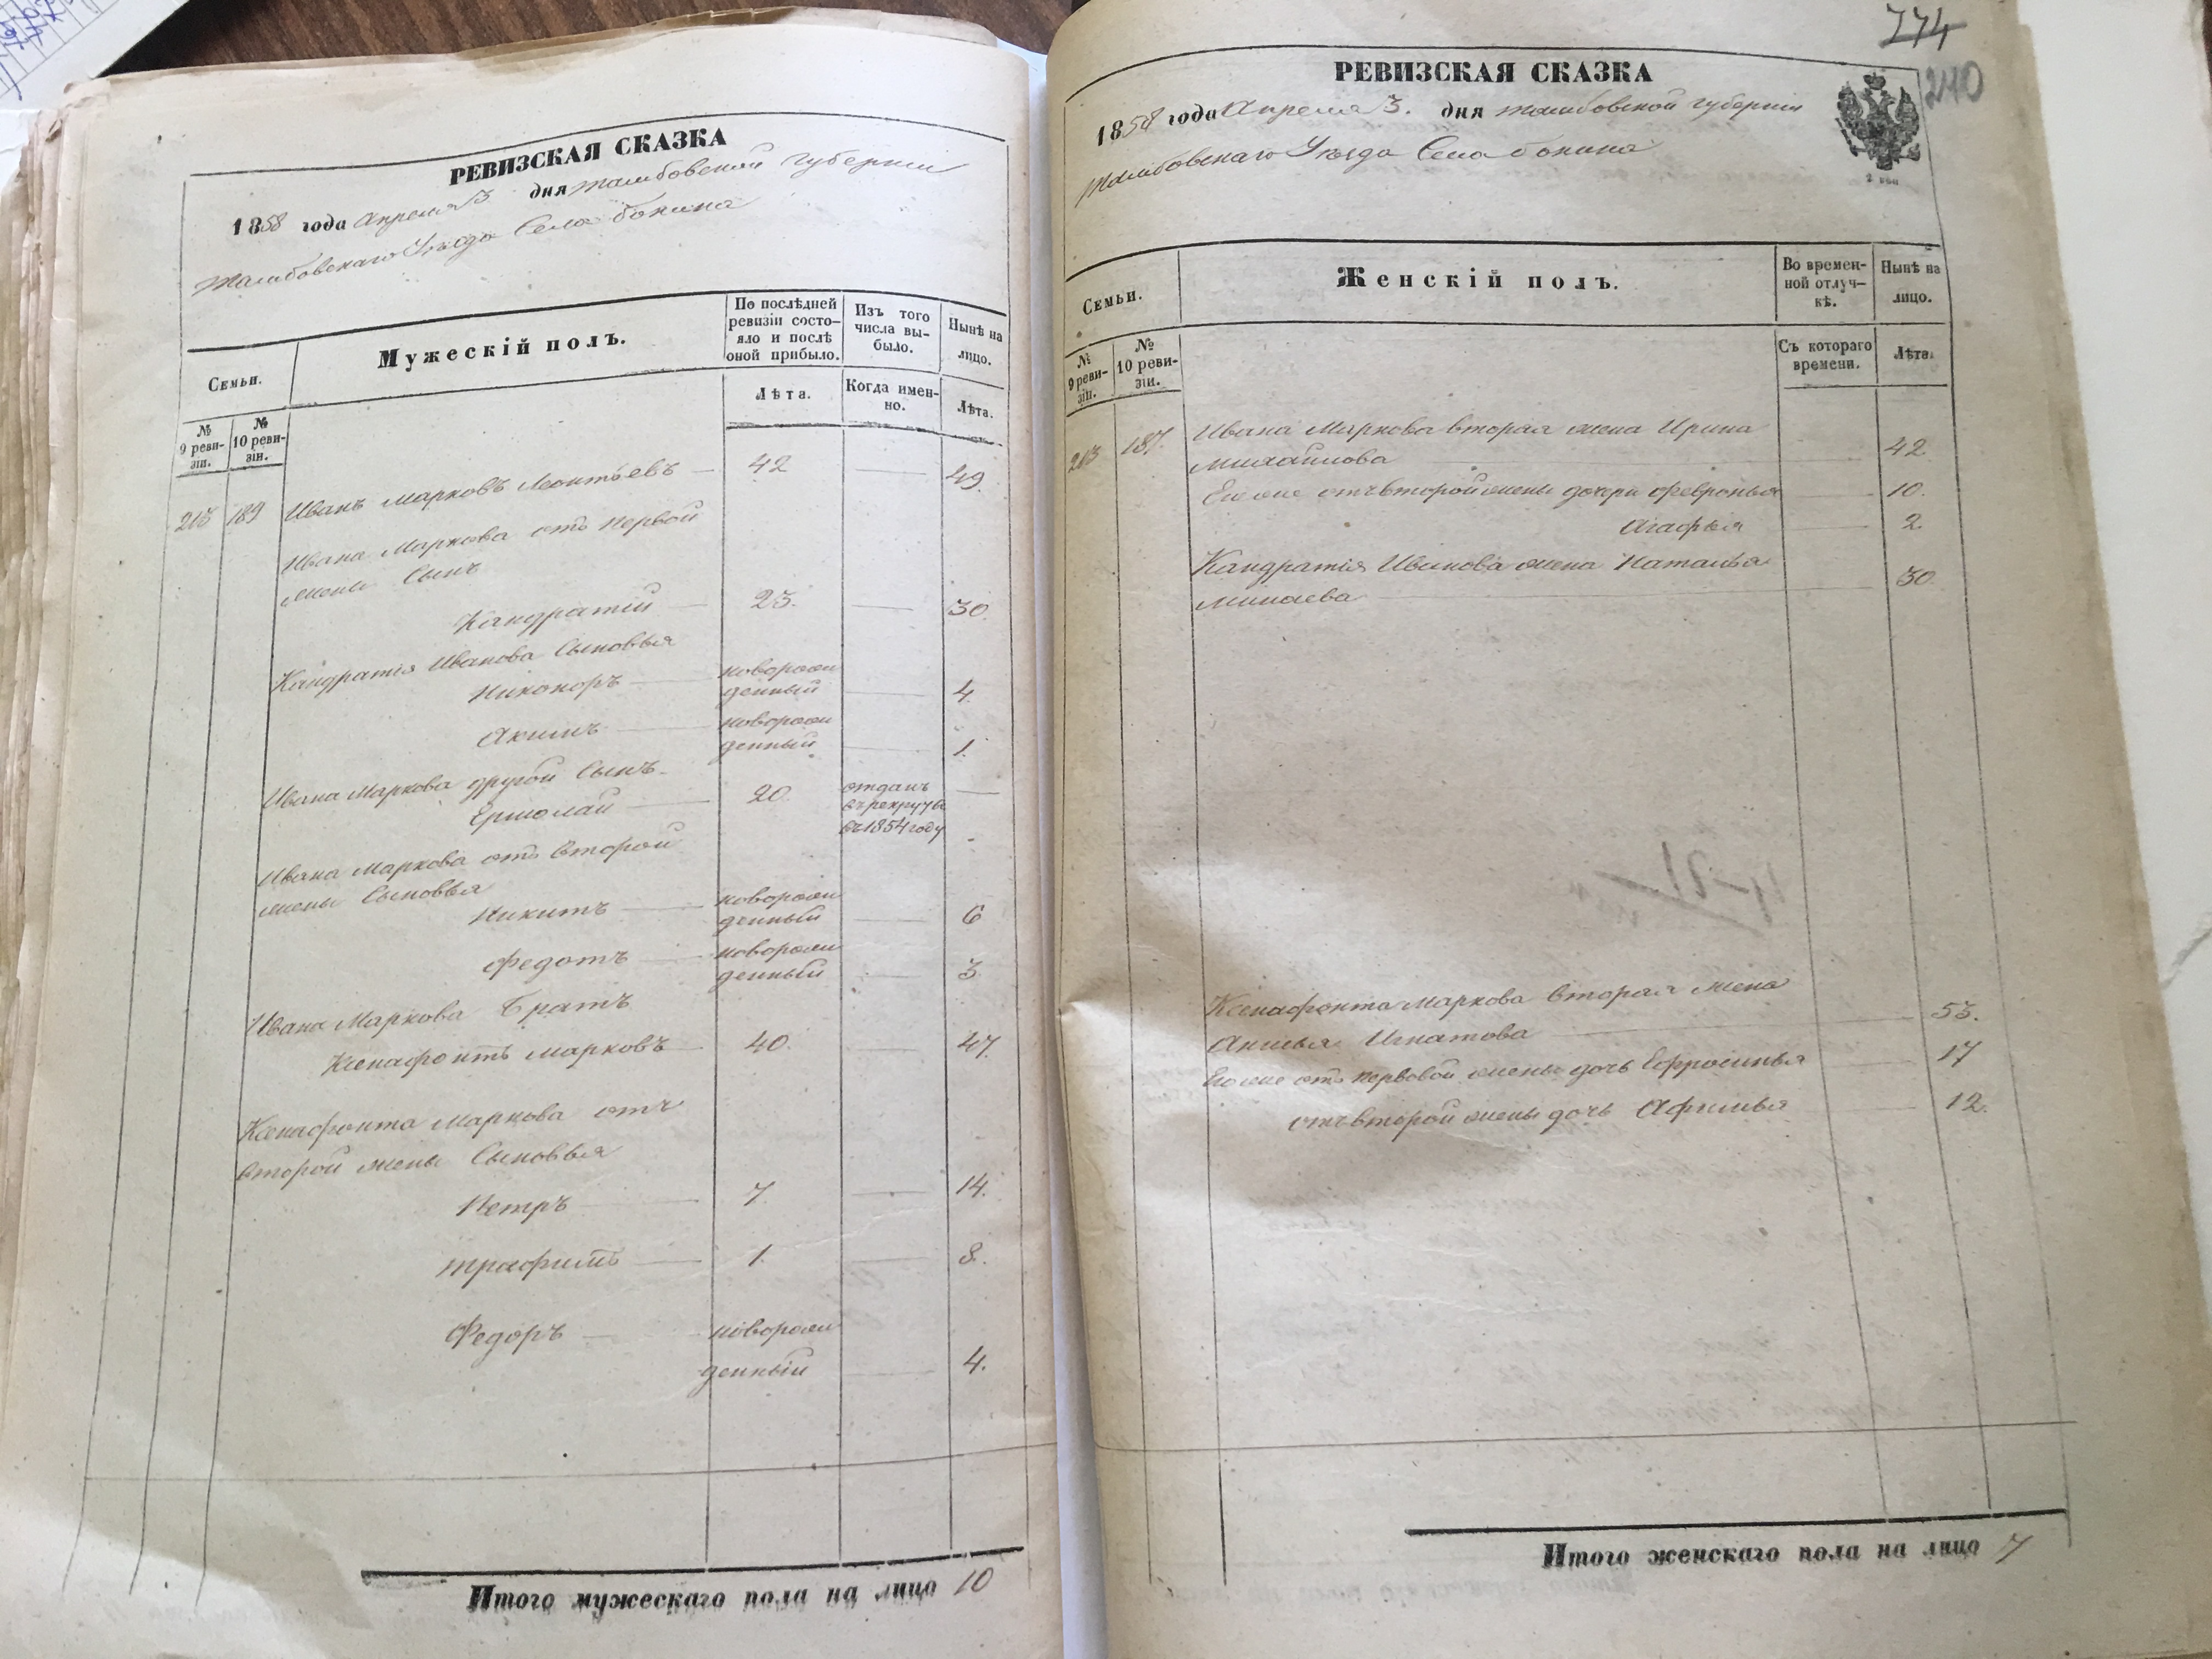 РЕВИЗСКАЯ СКАЗКА
1858 года Апреля 3 дня Тамбовской губернии
Тамбовскаго Уезда Села Бокина
Семьи.
Мужескій полъ.
По послѣдней ревизіи состо-
яло и послѣ
оной прибыло.
Изъ того
числа вы-
было.
Нынѣ на
лицо.
№
9 реви-
зіи.
№
10 реви-
зіи.
Лѣта.
Когда имен-
но.
Лѣта.
213 189 Иванъ Марковъ Леонтьевъ 42 49.
Ивана Маркова отъ первой
жены Сынъ
Кандратій 23. 30.
Кандратія Иванова Сыновья
Никоноръ новорож
денный 4.
Акимъ новорож
денный 1.
Ивана Маркова другой Сынъ
Ермолай 20. отданъ
въ рекруты
въ 1854 году
Ивана Маркова отъ второй
жены Сыновья
Никитъ новорож
денный 6
Федотъ новорож
денный 3
Ивана Маркова Братъ
Ксенафонтъ Марковъ 40. 47.
Ксенафонта Маркова отъ
второй жены Сыновья
Петръ 7. 14.
Трафимъ 1. 8.
Федоръ новорож
денный 4.
Итого мужескаго пола на лицо 10
274
240
РЕВИЗСКАЯ СКАЗКА
1858 года Апреля 3. дня Тамбовской губернии
Тамбовскаго Уезда Села Бокина
Семьи.
Женскій полъ.
Во времен-
ной отлуч-
кѣ.
Нынѣ на
лицо.
№
9 реви-
зіи.
№
10 реви-
зіи.
Съ котораго
времени.
Лѣта.
213 187. Ивана Маркова вторая жена Ирина
Михайлова 42.
Его же отъ второй жены дочери Февронья 10.
Агафья 2.
Кандратія Иванова жена Наталья
Минаева 30.
Ксенафонта Маркова вторая жена
Анисья Игнатова 53.
Его же отъ первовой жены дочь Ефросинья 17
отъ второй жены дочь Афимья 12.
Итого женскаго пола на лицо 7